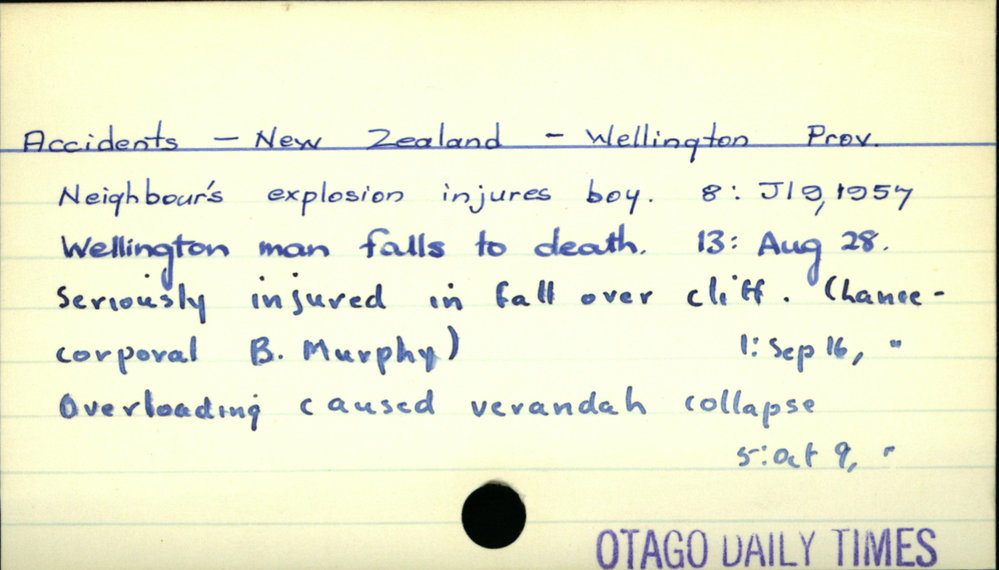 Accidents – New Zealand – Wellington Prov.
Neighbour's explosion injures boy. 8: Jl 9, 1957
Wellington man falls to death. 13: Aug 28.
Seriously injured in fall over cliff. (Lance-
corporal B. Murphy) 1: Sep 16, "
Overloading caused verandah collapse
5: Oct 9, "
OTAGO DAILY TIMES